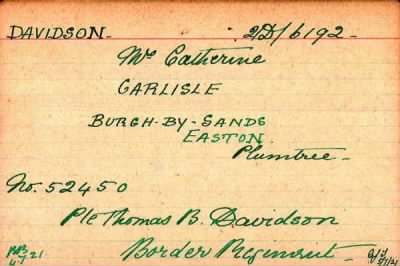 DAVIDSON. 2/D/6192.
Mrs Catherine
CARLISLE
BURGH-BY-SANDS
EASTON.
Plumtree.
No. 52450
Pte Thomas B. Davidson
Border Regiment.